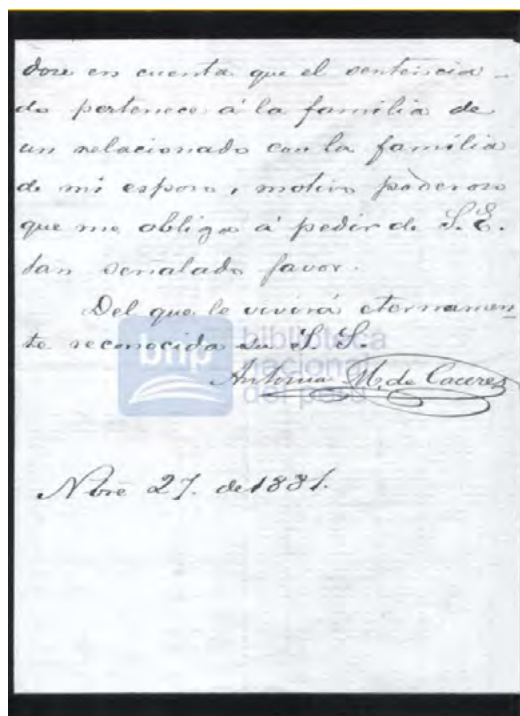 dose en cuenta que el sentencia-
do pertenece á la familia de
un relacionado con la familia
de mi esposo, motivo poderoso
que me obliga á pedir de S.E.
tan señalado favor.
Del que le vivirá eternamen-
te reconocida su S. S.
Antonia M. de Caceres
bnp biblioteca
nacional
del perú
Nbre 27. de 1881.